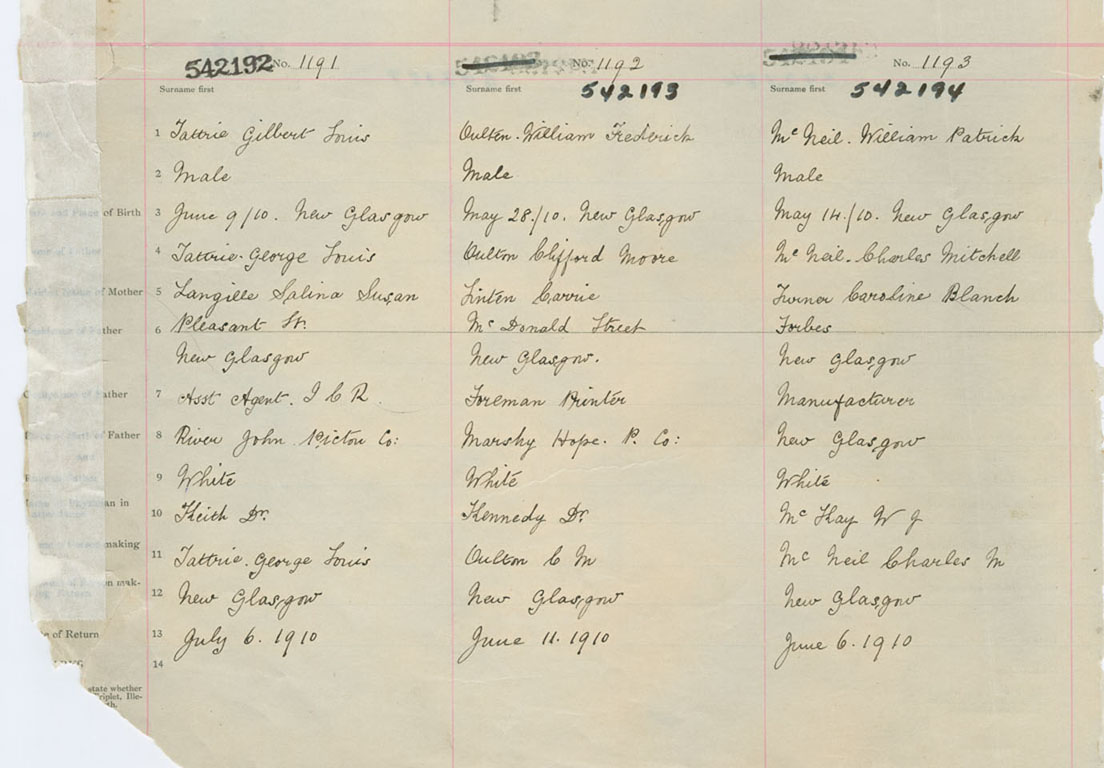 542192 No. 1191
Surname first
1 Tattrie Gilbert Louis
2 Male
of Birth 3 June 9/10. New Glasgow
4 Tattrie George Louis
of Mother 5 Langille Salina Susan
6 Pleasant St.
New Glasgow
7 Asst Agent. I C R.
of Father 8 River John Pictou Co:
9 White
in 10 Keith Dr.
making 11 Tattrie. George Louis
mak- 12 New Glasgow
of Return 13 July 6. 1910
14
state whether
Triplet, Ille-
No. 1192
Surname first 542193
Oulton. William Frederick
Male
May 28./10. New Glasgow
Oulton Clifford Moore
Linten Carrie
Mc Donald Street
New Glasgow.
Foreman Printer
Marshy Hope. P. Co:
White
Kennedy Dr.
Oulton C M
New Glasgow
June 11. 1910
No. 1193
Surname first 542194
Mc Neil. William Patrick
Male
May 14./10. New Glasgow
Mc Neil. Charles Mitchell
Turner Caroline Blanch
Forbes
New Glasgow
Manufacturer
New Glasgow
White
Mc Kay W J
Mc Neil Charles M
New Glasgow
June 6. 1910